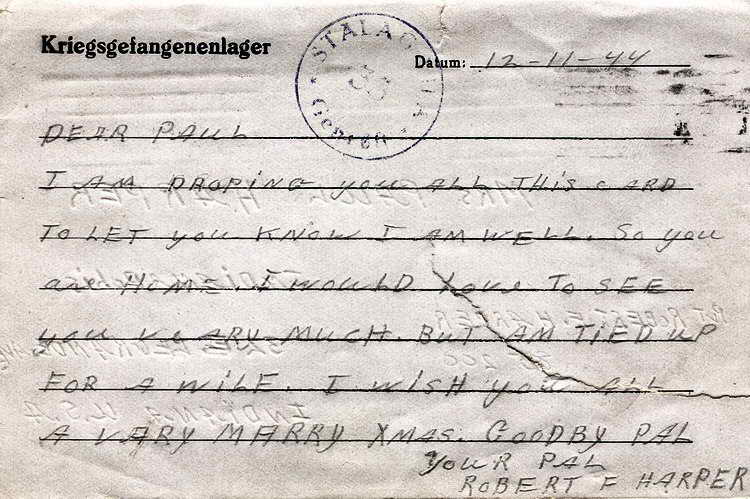 Kriegsgefangenenlager
STALAG
Geprüft
Datum: 12-11-44
DEAR PAUL
I AM DROPING you ALL THIS CARD
TO LET you KNOW I AM WELL. SO you
are HOME. I WOULD love TO SEE
you VEARY MUCH. BUT AM TIED UP
FOR A WILE. I WISH you ALL
A VARY MARRY XMAS. GOODBY PAL
YOUR PAL
ROBERT F HARPER